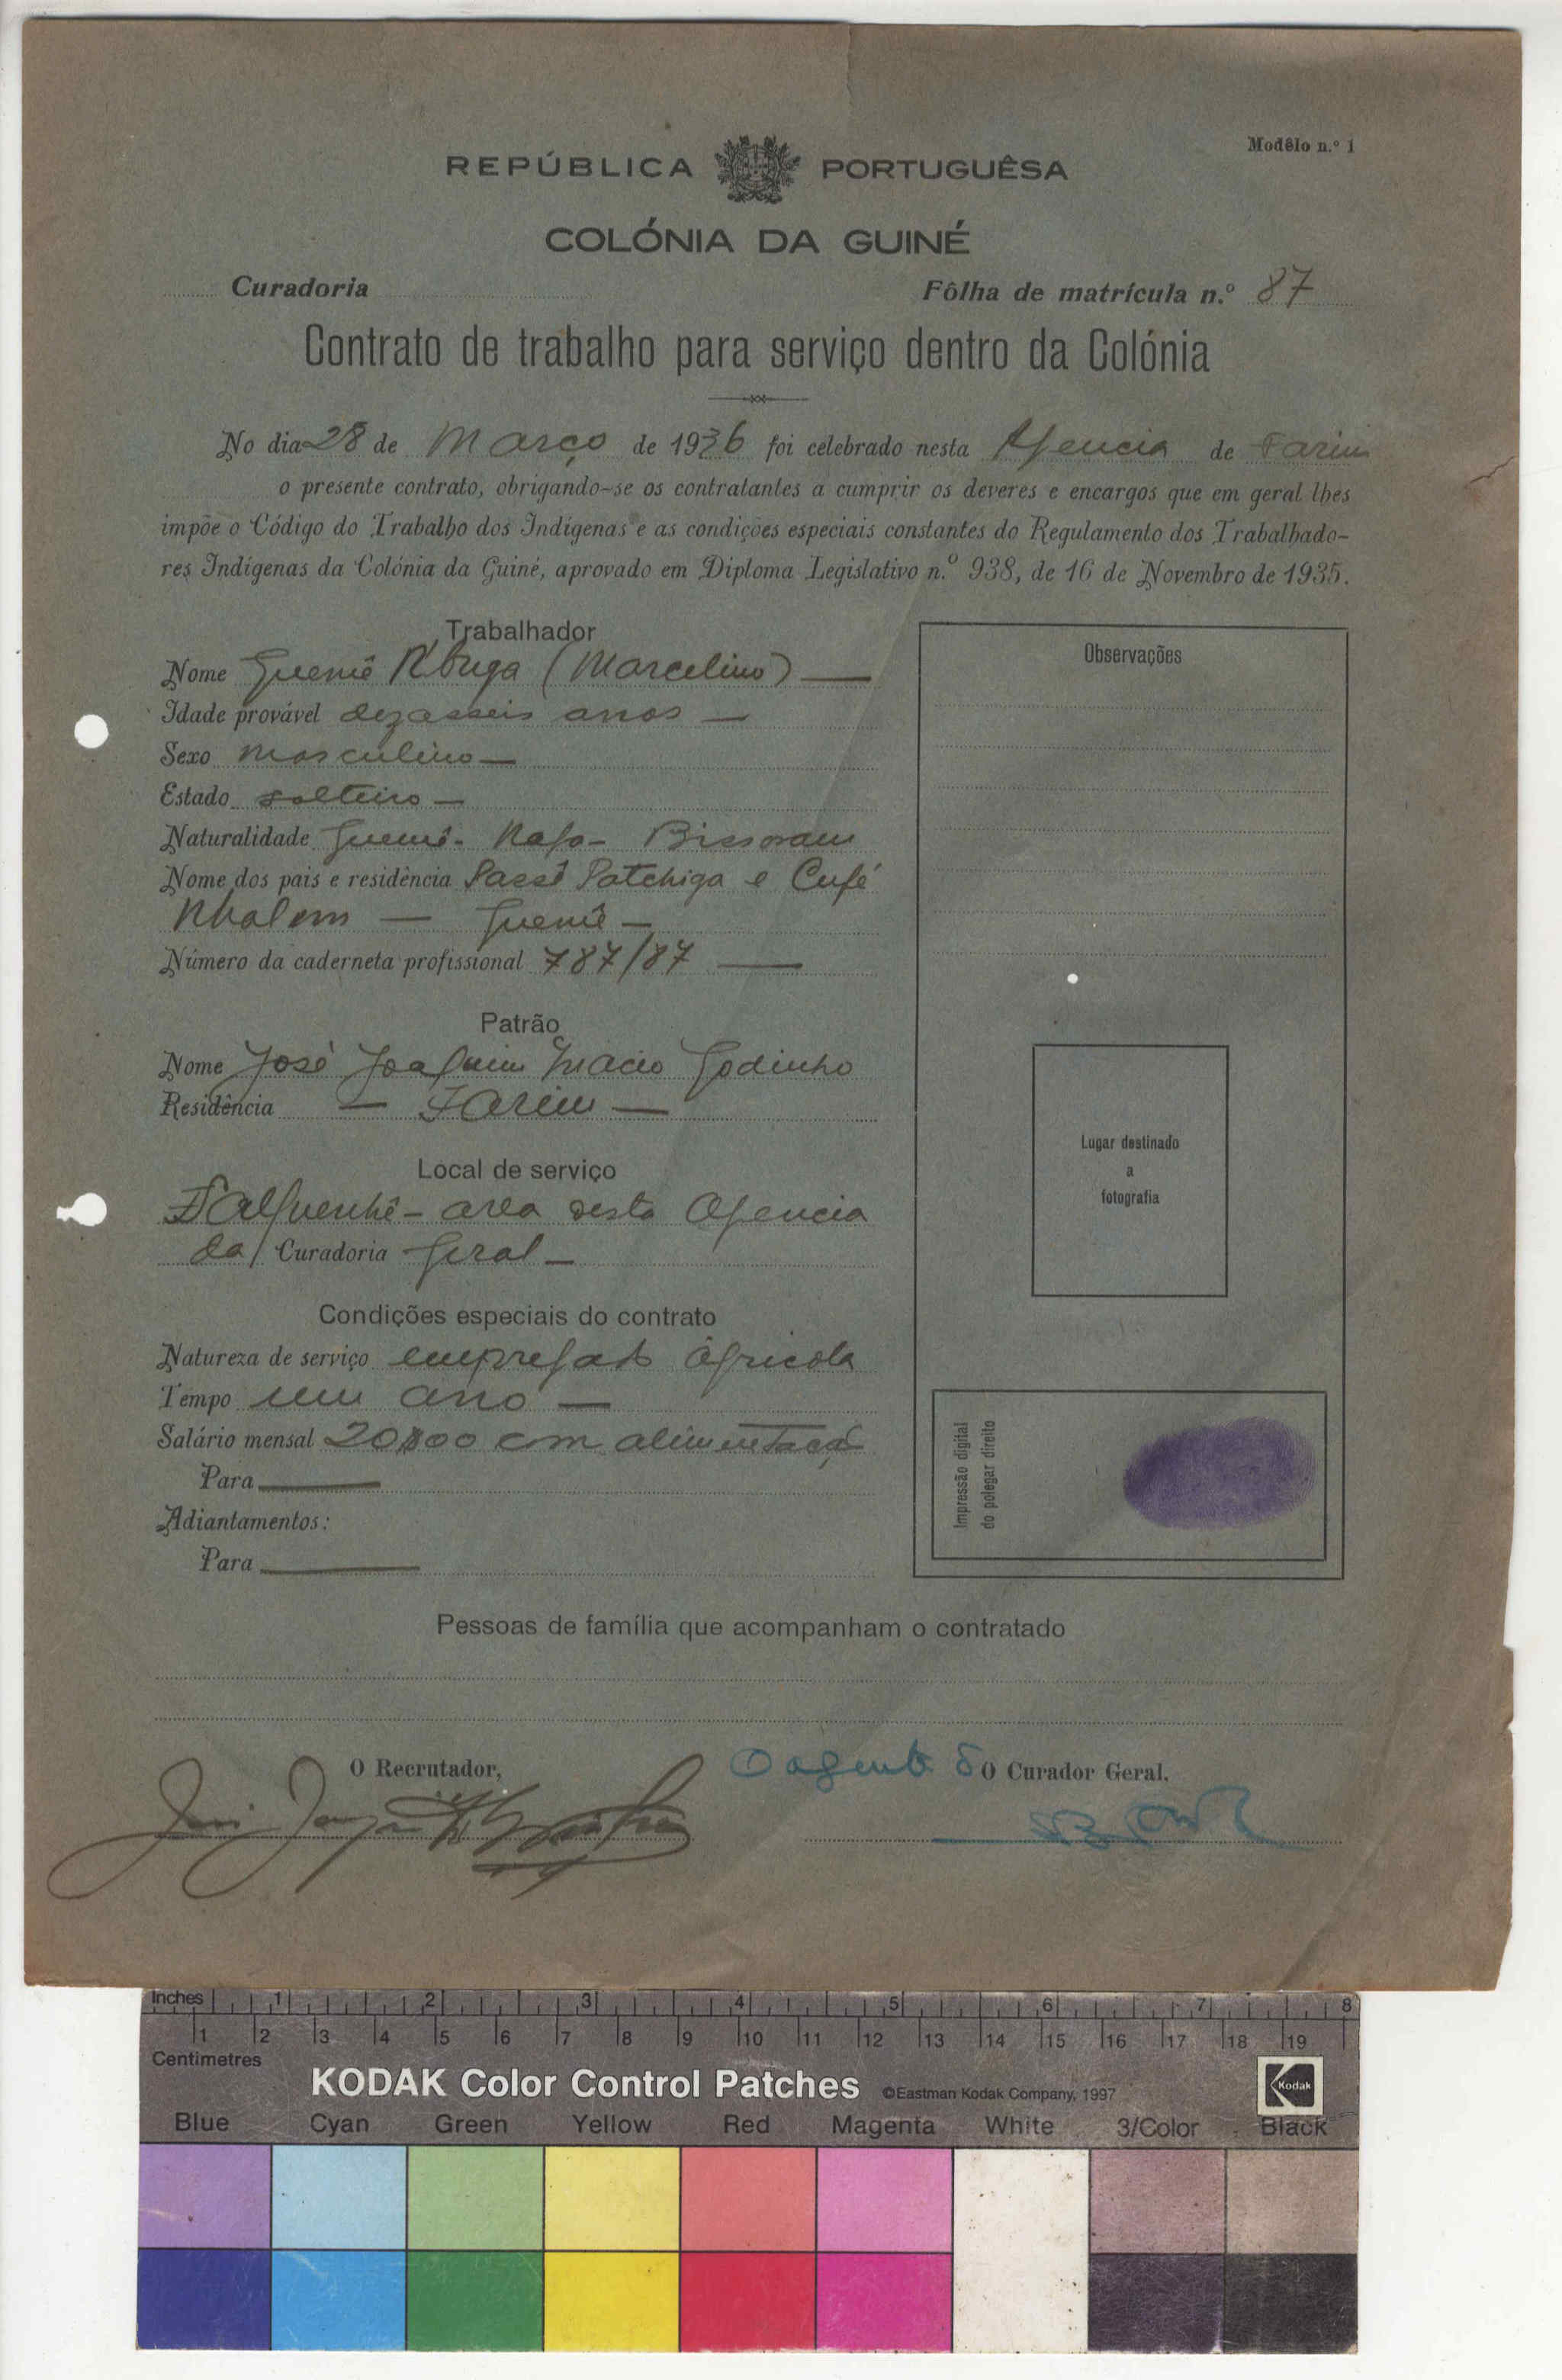 Modêlo n.º 1
REPÚBLICA PORTUGUÊSA
COLÓNIA DA GUINÉ
Curadoria Fôlha de matrícula n.º 87
Contrato de trabalho para serviço dentro da Colónia
No dia 28 de Março de 1936 foi celebrado nesta Agencia de Farim
o presente contrato, obrigando-se os contratantes a cumprir os deveres e encargos que em geral lhes
impõe o Código do Trabalho dos Indígenas e as condições especiais constantes do Regulamento dos Trabalhado-
res Indígenas da Colónia da Guiné, aprovado em Diploma Legislativo n.º 938, de 16 de Novembro de 1935.
Trabalhador
Nome (Marcelino)
Idade provável dezasseis anos
Sexo masculino
Estado solteiro
Naturalidade Bissoram
Nome dos pais e residência Patchiga e Cufé
Número da caderneta profissional 787/87
Patrão
Nome José Joaquim Inacio Godinho
Residência Farim
Local de serviço
area desta Agencia
da Curadoria Geral
Condições especiais do contrato
Natureza de serviço empregado Agricola
Tempo um ano
Salário mensal 20$00 com alimentação
Para
Adiantamentos:
Para
Observações
Lugar destinado
a
fotografia
Impressão digital
do polegar direito
Pessoas de família que acompanham o contratado
O Recrutador,
O agente do O Curador Geral,
Inches 1 2 3 4 5 6 7 8
1 2 3 4 5 6 7 8 9 10 11 12 13 14 15 16 17 18 19
Centimetres
KODAK Color Control Patches ©Eastman Kodak Company, 1997 Kodak
Blue Cyan Green Yellow Red Magenta White 3/Color Black